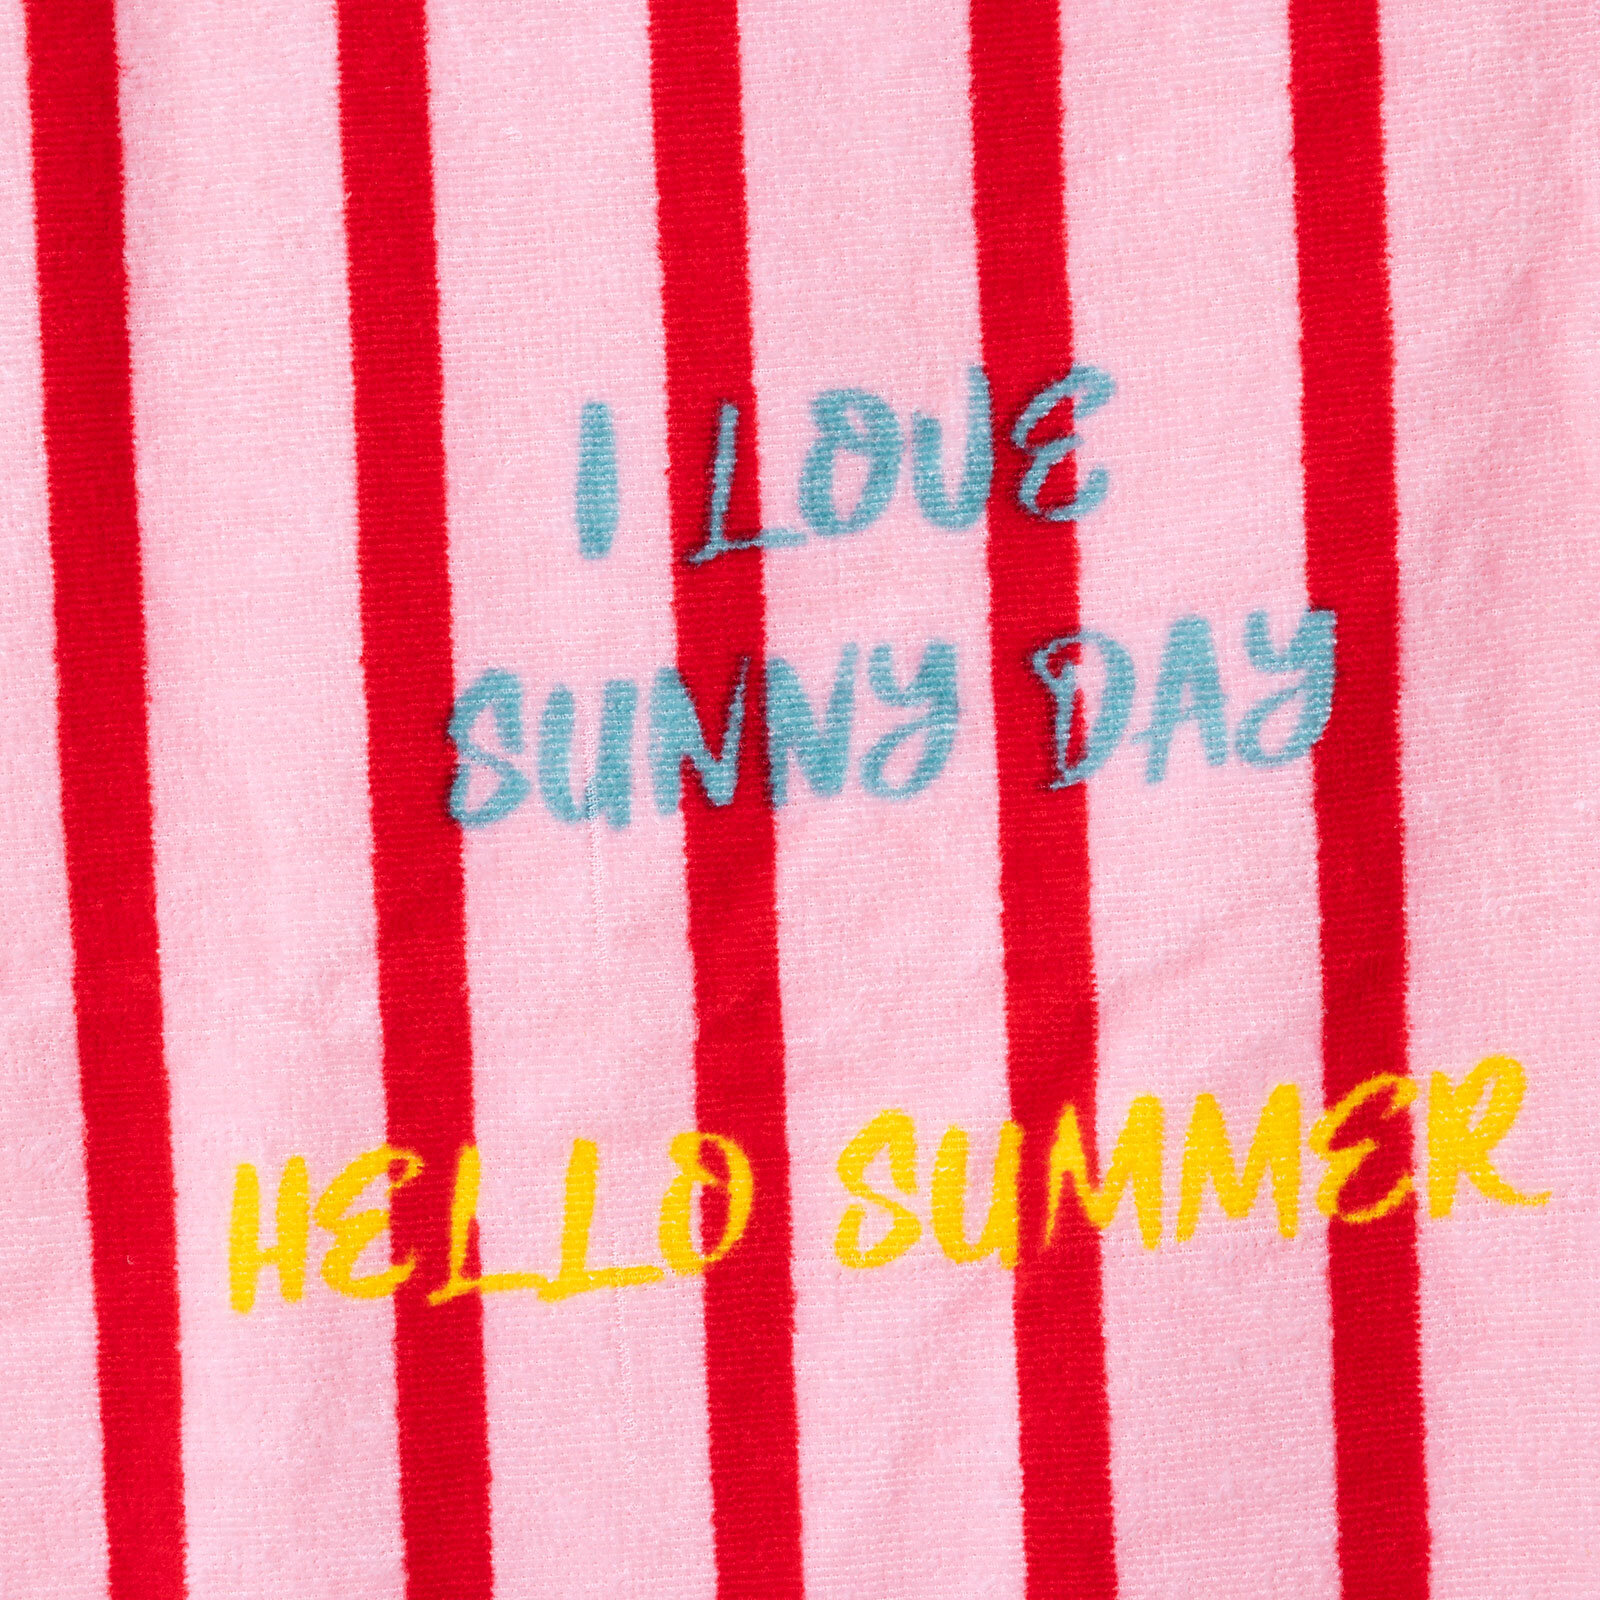 I LOVE
SUNNY DAY
HELLO SUMMER